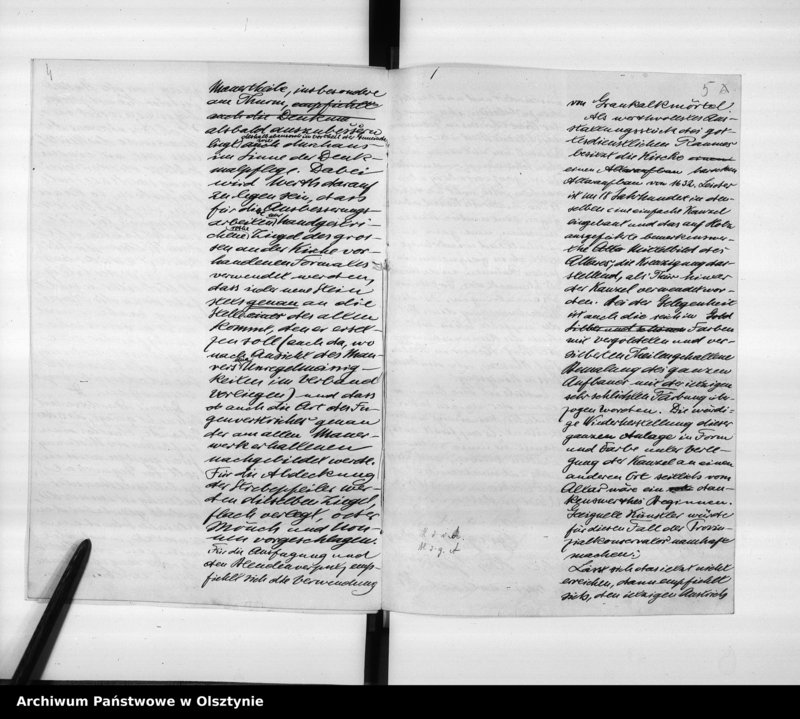 4
Mauertheile, insbesondere
am Thurm, empfiehlt
sich die Denkm
alsbald auszubessern
liegt durchaus
im Sinne der Denk-
malpflege. Dabei
wird Werth darauf
zu legen sein, dass
für die Ausbesserungs-
arbeiten nur handgestri-
chene rothe Ziegel des gros-
sen an der Kirche vor-
handenen Formates
verwendet werden,
dass jeder neue Stein
stets genau an die
Stelle eines der alten
komme, den er erset-
zen soll (auch da, wo
nach Ansicht des Mau-
rers Unregelmässig-
keiten im Verband
vorliegen) und dass
auch die Art des Fu-
genverstriches genau
der am alten Mauer-
werk erhaltenen
nachgebildet werde.
Für die Abdeckung
der Strebepfeiler wer-
den dieselben Ziegel,
flach verlegt, oder
Mönch und Non-
nen vorgeschlagen.
Für die Ausfugung und
den Blendenverputz emp-
fiehlt sich die Verwendung
5
von Graukalkmörtel.
Als wertvollstes Aus-
stattungsstück des got-
tesdienstlichen Raumes
besitzt die Kirche
einen Altaraufbau
Altaraufbau von 1632. Leider
ist im 18 Jahrhundert in den-
selben eine einfache Kanzel
eingebaut und das auf Holz
ausgeführte bemerkenswer-
the alte Mittelbild des
Altares, die Kreuzigung dar-
stellend, als Tür hinter
der Kanzel verwendet wor-
den. Bei der Gelegenheit
ist auch die sich in Gold
Silber und Farben
mit vergoldeten und ver-
silberten Theilen gehaltene
Bemalung des ganzen
Aufbaues mit der jetzigen
sehr schlichten Färbung über-
zogen worden. Die würdi-
ge Wiederherstellung dieser
ganzen Anlage in Form
und Farbe unter Verle-
gung der Kanzel an einen
anderen Ort seitlich vom
Altar wäre ein dan-
kenswerthes Beginnen.
Geeignete Künstler würde
für diesen Fall der Provin-
zialkonservator namhaft
machen.
Lässt sich das jetzt nicht
erreichen, dann empfiehlt
sich, den jetzigen Anstrich
Archiwum Państwowe w Olsztynie